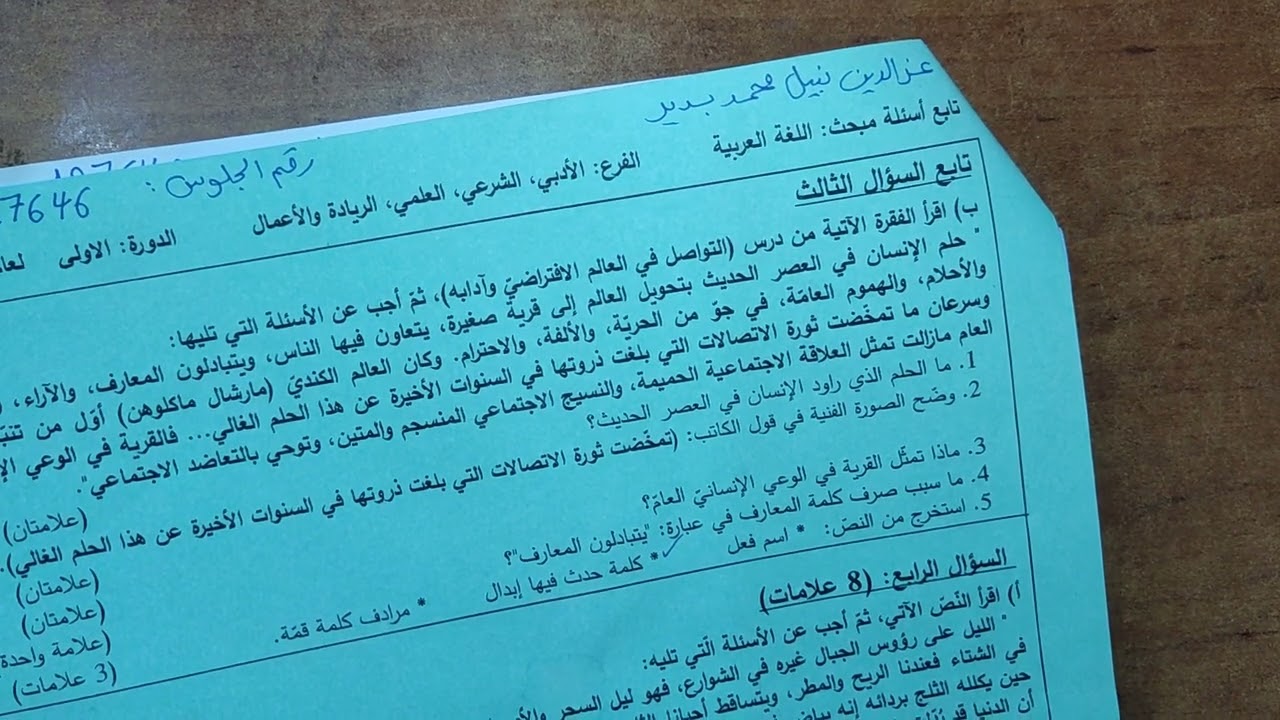 عزالدين نبيل محمد بدير
رقم الجلوس : 7646
تابع أسئلة مبحث: اللغة العربية الفرع: الأدبي، الشرعي، العلمي، الريادة والأعمال الدورة: الاولى
تابع السؤال الثالث
ب) اقرأ الفقرة الآتية من درس (التواصل في العالم الافتراضيّ وآدابه)، ثمّ أجب عن الأسئلة التي تليها:
" حلم الإنسان في العصر الحديث بتحويل العالم إلى قرية صغيرة، يتعاون فيها الناس، ويتبادلون المعارف، والآراء،
والأحلام، والهموم العامّة، في جوّ من الحريّة، والألفة، والاحترام. وكان العالم الكنديّ (مارشال ماكلوهن) أوّل من
وسرعان ما تمخّضت ثورة الاتصالات التي بلغت ذروتها في السنوات الأخيرة عن هذا الحلم الغالي... فالقرية في الوعي
العام مازالت تمثل العلاقة الاجتماعية الحميمة، والنسيج الاجتماعي المنسجم والمتين، وتوحي بالتعاضد الاجتماعي".
1. ما الحلم الذي راود الإنسان في العصر الحديث؟ (علامتان)
2. وضّح الصورة الفنية في قول الكاتب: (تمخّضت ثورة الاتصالات التي بلغت ذروتها في السنوات الأخيرة عن هذا الحلم الغالي).
(علامتان)
3. ماذا تمثّل القرية في الوعي الإنسانيّ العامّ؟ (علامتان)
4. ما سبب صرف كلمة المعارف في عبارة: "يتبادلون المعارف"؟ (علامة واحدة
5. استخرج من النصّ: * اسم فعل * كلمة حدث فيها إبدال * مرادف كلمة قمّة. (3 علامات)
السؤال الرابع: (8 علامات)
أ) اقرأ النّصّ الآتي، ثمّ أجب عن الأسئلة الّتي تليه:
" الليل على رؤوس الجبال غيره في الشوارع، فهو ليل السحر
في الشتاء فعندنا الريح والمطر، ويتساقط أحيانا
حين يكلله الثلج بردائه إنه بياض
أن الدنيا قد